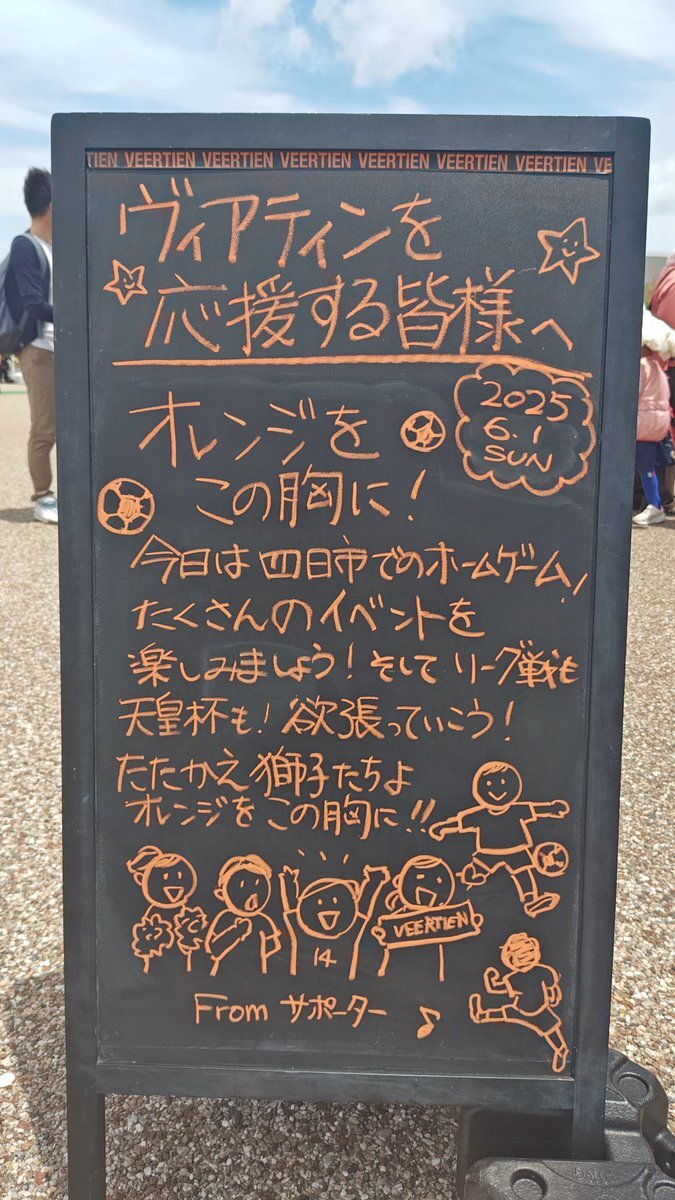 TIEN VEERTIEN VEERTIEN VEERTIEN VEERTIEN VEERTIEN VEERTIEN VE
ヴィアティンを
応援する皆様へ
2025
6.1
SUN
オレンジを
この胸に!
今日は四日市でのホームゲーム!
たくさんのイベントを
楽しみましょう!そしてリーグ戦も
天皇杯も!欲張っていこう!
たたかえ獅子たちよ
オレンジをこの胸に!!
VEERTIEN
14
From サポーター♪